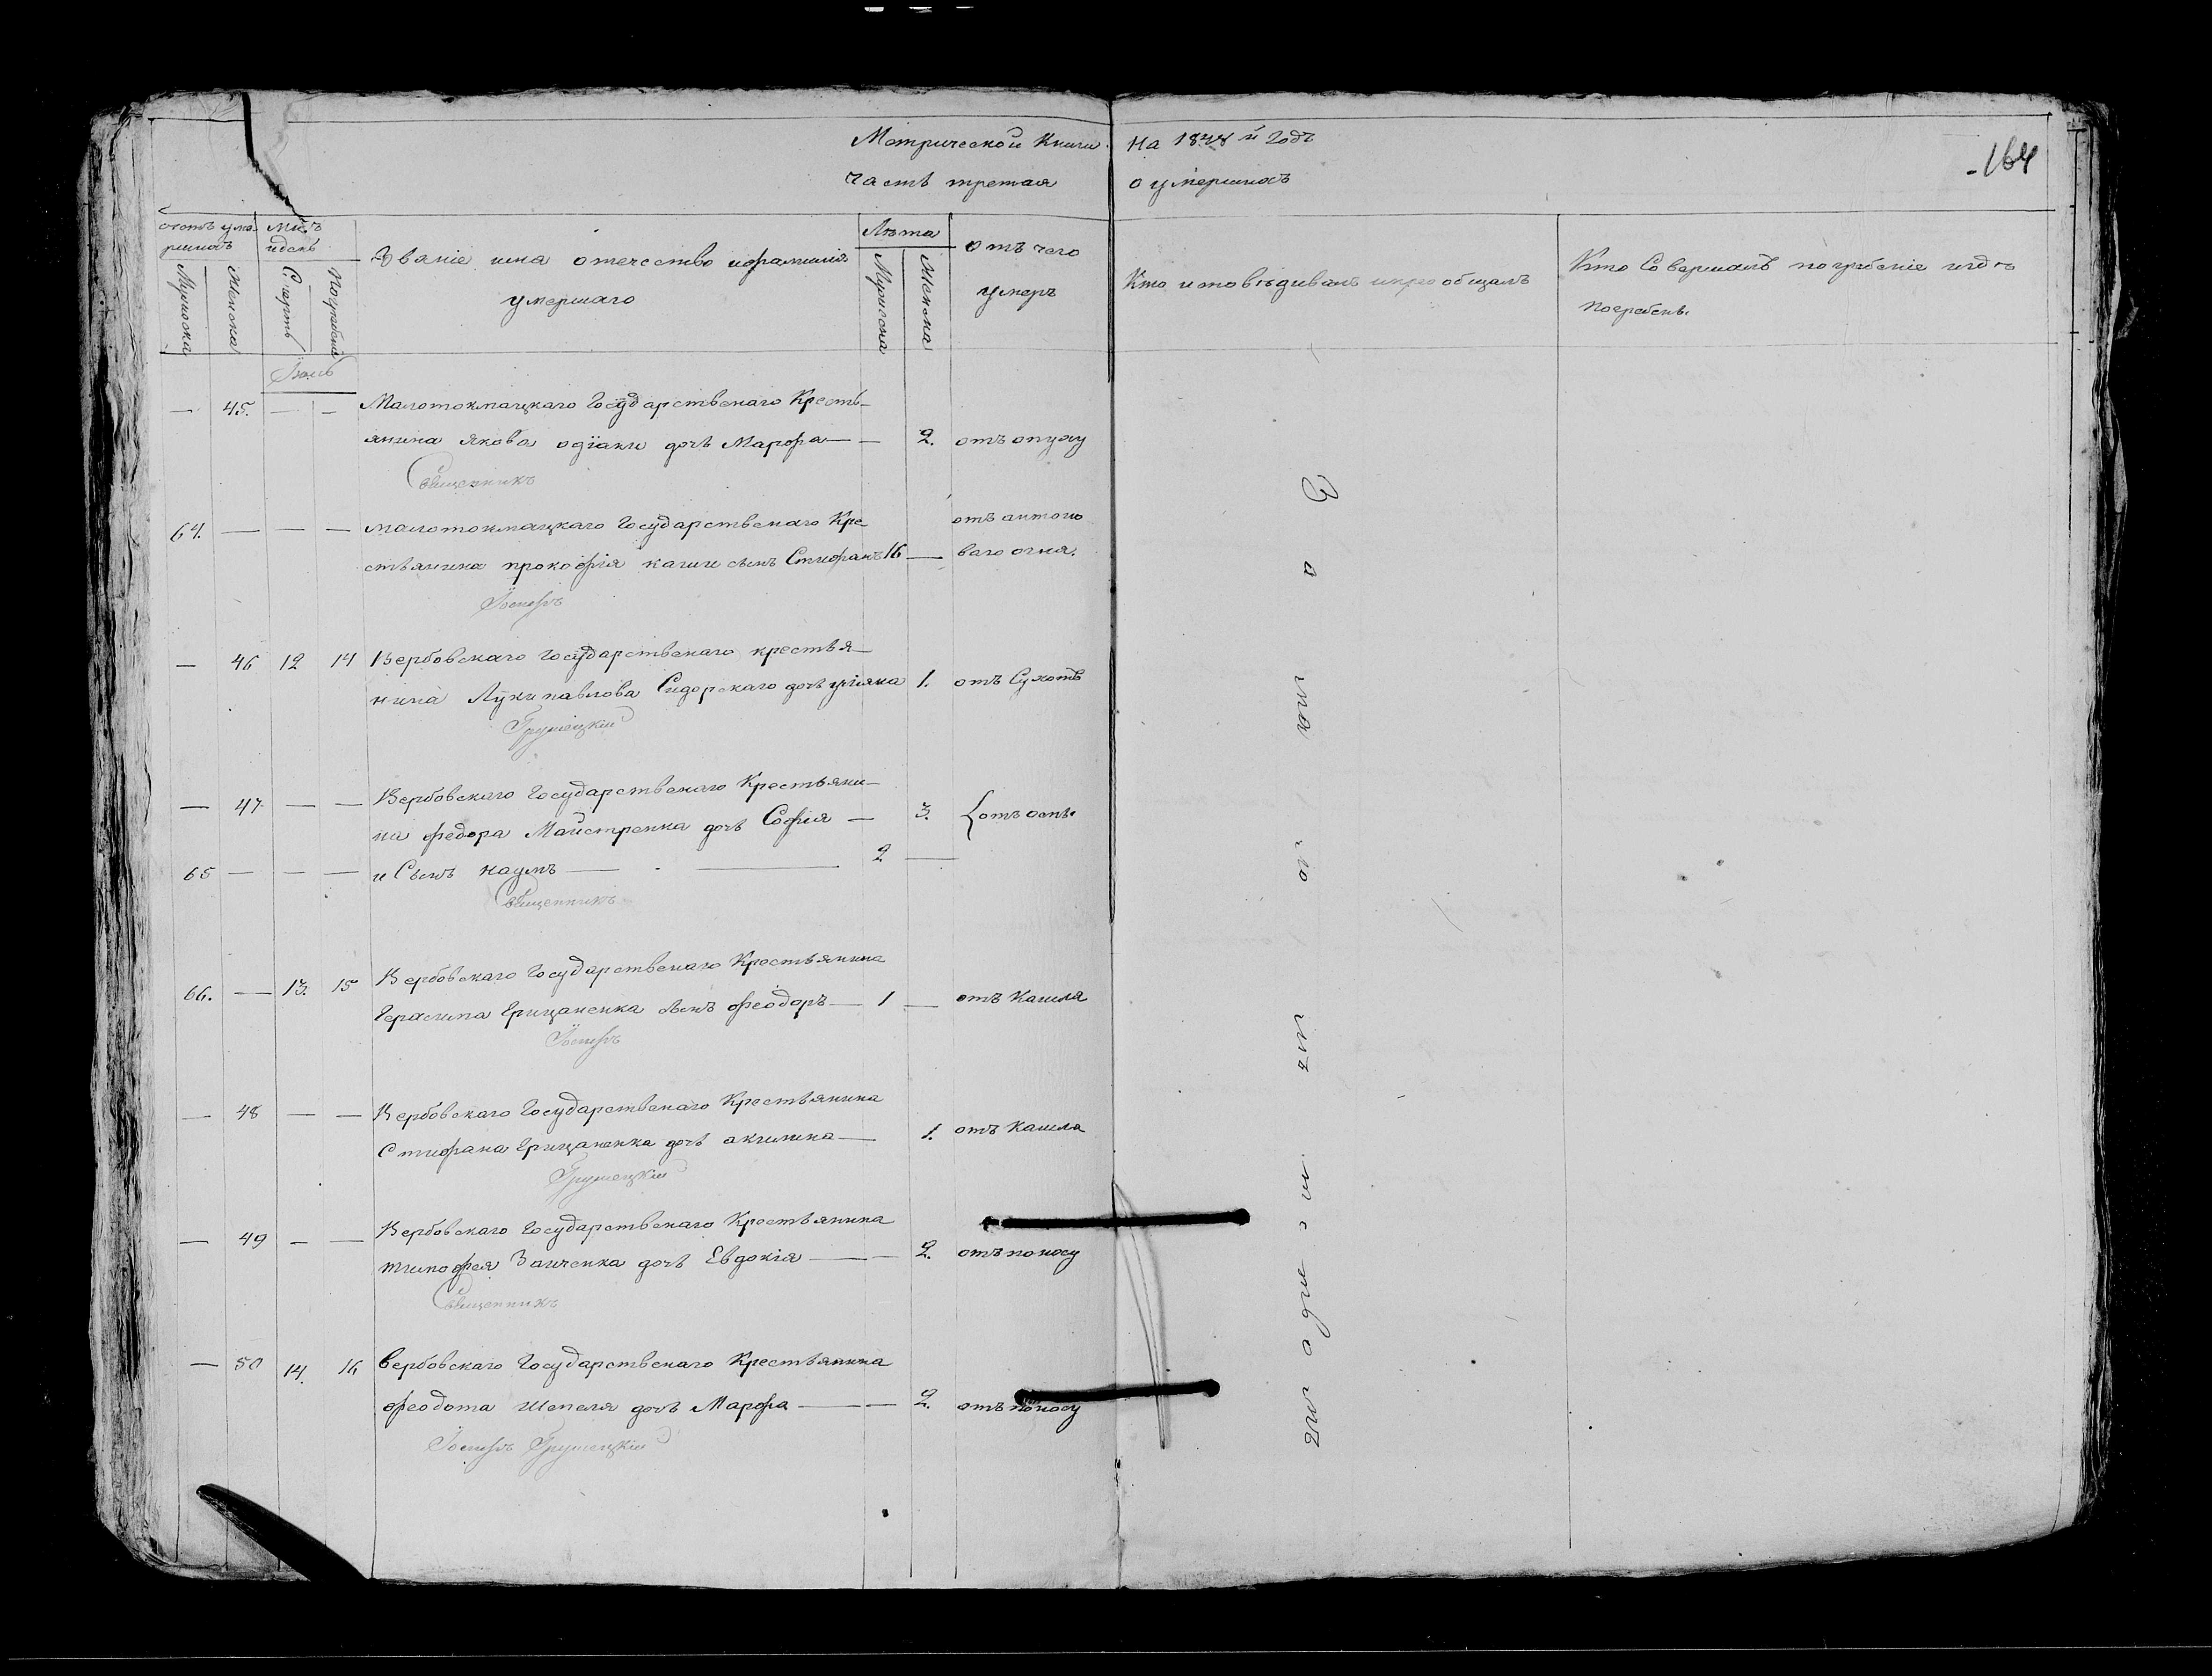 Метрической книги на 1848й годъ
часть третая о умершихъ
164
счетъ уме-
ршихъ
Мужеска
Женска
мц.ъ
и день
Смерть
Погребения
Званіе имя отечество и фамилия
умершаго
Лѣта
Мужеска
Женска
отъ чего
умеръ
Кто исповѣдивалъ и преобщалъ
Кто Совершалъ погребеніе и гдѣ
погребенъ.
— 45. — — Малотокмацкаго Государственаго Кресть-
янина якова одіаки дочь Марфа — — 2. отъ опуху
Священникъ
64. — — — малотокмацкаго Государственаго Кре
стьянина прокофія сынъ Стифанъ 16 — отъ антоно
ваго огня.
Іосифъ
— 46 12 14 Вербовскаго государственаго крестья-
нина Луки павлова Сидорскаго дочь уліяна 1. отъ Сухотъ
Грушецкий
— 47 — — Вербовскаго Государственаго Крестьяни-
на федора Майстренка дочь Софія — 3. отъ оспы
65 — — — и Сынъ наумъ — 2 —
Священникъ
66. — 13. 15 Вербовскаго Государственаго Крестьянина
Герасима Грицаненка сынъ феодоръ — 1 — отъ Кашля
Іосифъ
— 48 — — Вербовскаго Государственаго Крестьянина
Стифана Грицаненка дочь акилина — 1. отъ Кашля
Грушецкий
— 49 — — Вербовскаго Государственаго Крестьянина
тимофея Заиченка дочь Евдокія — — 2. отъ поносу
Священникъ
— 50 14. 16 вербовскаго Государственаго Крестьянина
феодота Шепеля дочь Марфа — — 2. отъ поносу
Іосифъ Грушецкий